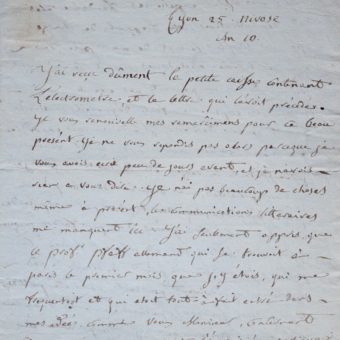 Lyon 25. Nivose
An 10.
J'ai reçu dûment la petite caisse contenant
l'electrometre et la lettre qui l'avoit précédé.
Je vous renouvelle mes remerciemens pour ce beau
présent. Je ne vous repondis pas alors parceque je
vous avois ecrit peu de jours avant, et je n'avois
rien a vous dire. Je n'ai pas beaucoup de choses
même à présent, les communications litteraires
me manquent ici. J'ai seulement appris que
le prof.r pfaff allemand qui se trouvoit à
paris le premier mois que j'y etois, qui me
frequentoit et qui etoit tout-à-fait entré dans
mes idées, comme vous Monsieur,